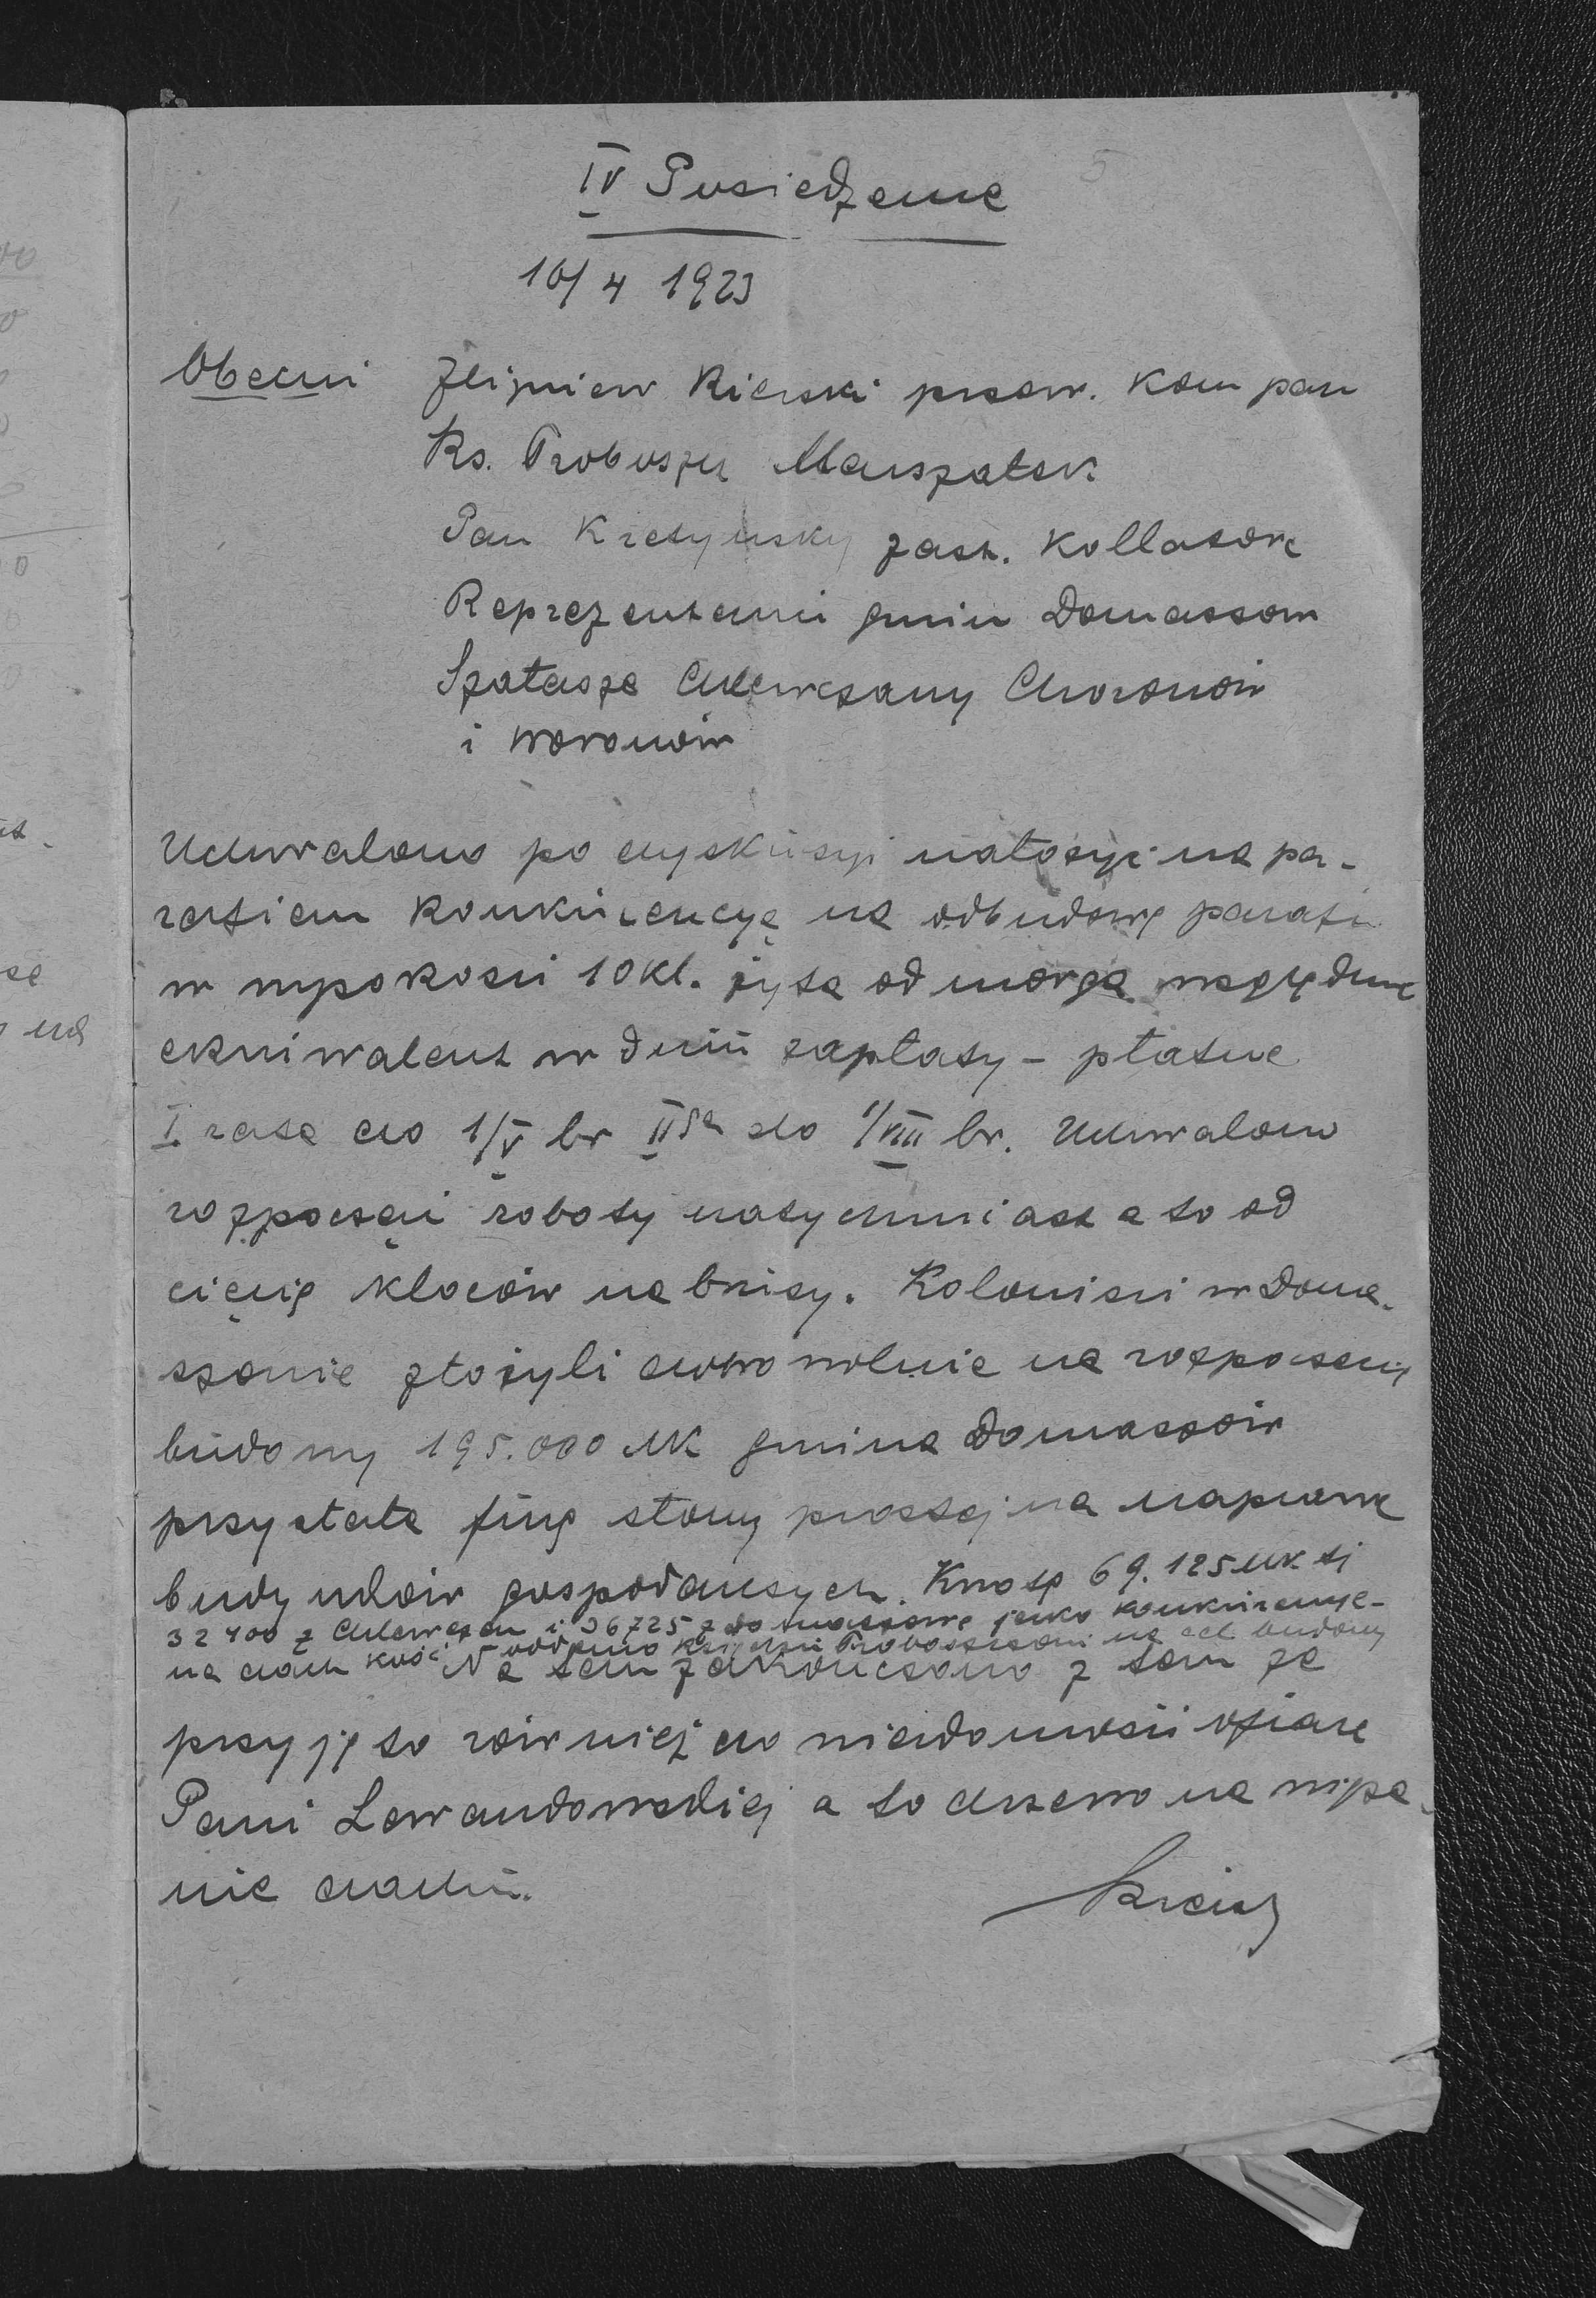 5
IV Posiedzenie
10/4 1923
Obecni Zbigniew Kierski przew. Kom par
Ks. Proboszcz Marszałek
Pan Kretynsky zast. Kollatora
Reprezentanci gmin Domaszow
Szałasze Chlewczany Choronów
i Woronów
Uchwalono po dyskusyi nałożyć na pa-
rafian konkurencyę na odbudowę parafii
w wysokości 10 kl. żyta od morga względnie
ekwiwalent w dniu zapłaty – płatne
I rata do 1/V br IIga do 1/VIII br. Uchwalono
rozpocząć roboty natychmiast a to od
cięcia kloców na brusy. Koloniści w Doma-
szowie złożyli dobrowolnie na rozpoczęcie
budowy 195.000 Mk gmina Domaszów
przystała furę słomy prostej na naprawę
budynków gospodarczych. Kwotę 69.125 Mk tj
32400 z Chlewczan i 36725 z Domaszowa jako konkurencję
na dach kość. oddano księdzu Proboszczowi na cel budowy
Na tem zakończono z tem że
przyjęto również do wiadomości ofiarę
Pani Lewandowskiej a to drzewo na wiąza-
nie dachu.